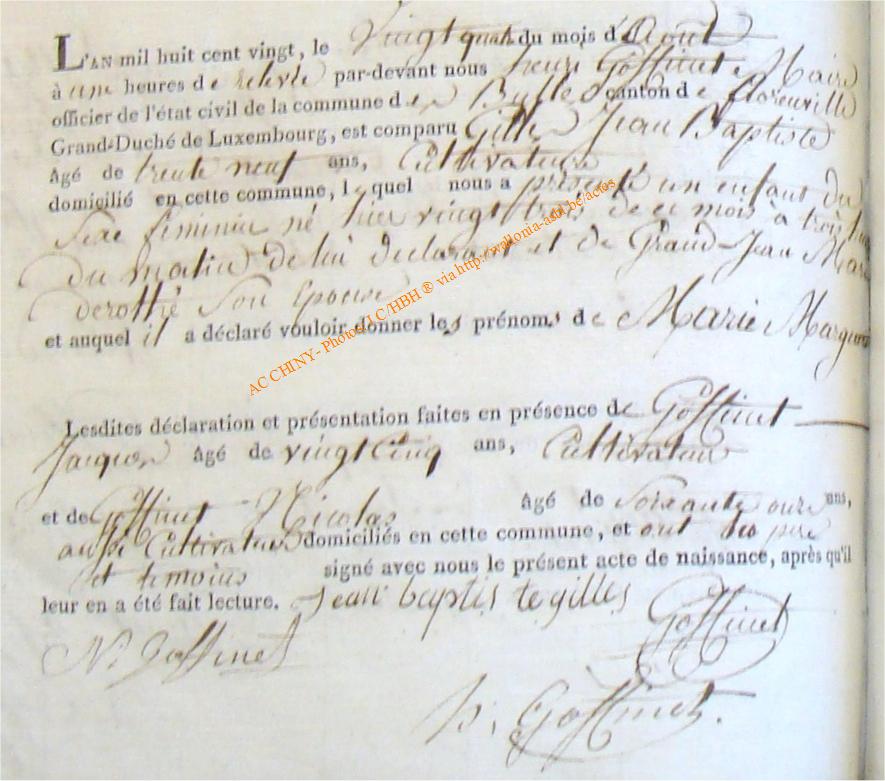 L'AN mil huit cent vingt, le Vingt quatre du mois d'Août
à une heures de relevée par-devant nous henri Goffinet Maire
officier de l'état civil de la commune de canton de florenville
Grand-Duché de Luxembourg, est comparu Gilles Jean Baptiste
âgé de trente neuf ans, Cultivateur
domicilié en cette commune, lequel nous a présenté un enfant du
Sexe féminin né hier vingt trois de ce mois à trois
du matin de lui déclarant et de Grand-Jean Marie
derothé Son Epouse
et auquel il a déclaré vouloir donner les prénoms de Marie Margueri
AC CHINY - Photos/LC/HBH ® via http://wallonia-asbl.be/actes
Lesdites déclaration et présentation faites en présence de Goffinet
Jacques âgé de vingt Cinq ans, Cultivateur
et de Goffinet Nicolas âgé de soixante onze ans,
aussi Cultivateur domiciliés en cette commune, et ont les pere
et temoins signé avec nous le présent acte de naissance, après qu'il
leur en a été fait lecture. jean baptis te gilles
Goffinet
N. goffinet
h. Goffinet.